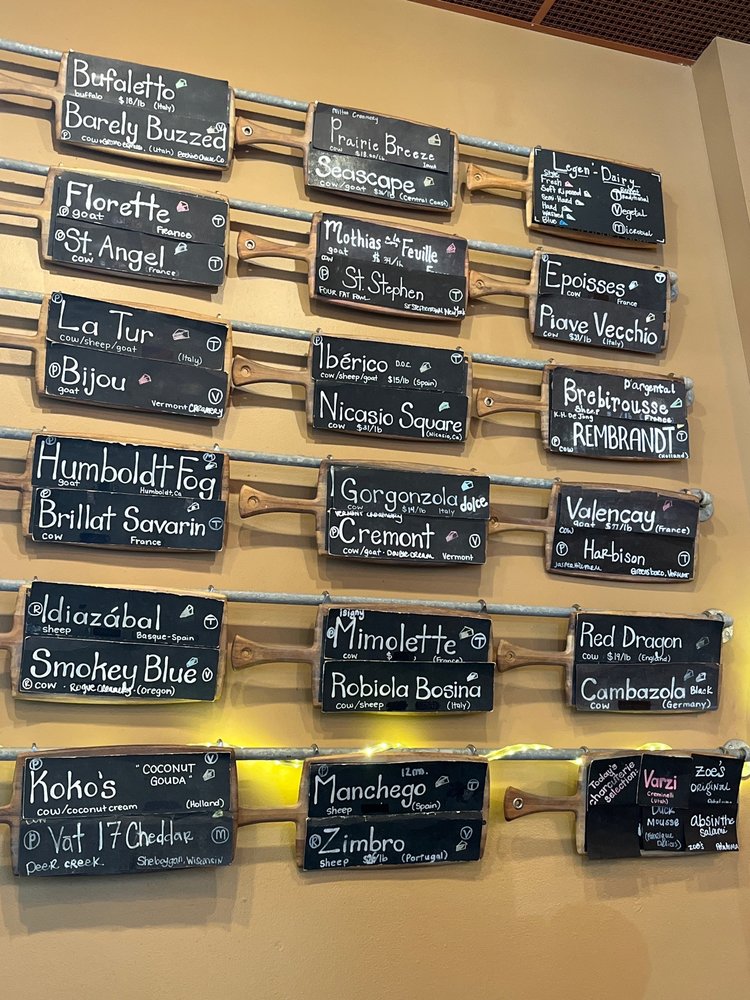 Bufaletto
buffalo $18/lb (Italy)
Barely Buzzed V
P cow (Utah) Beehive Cheese Co
Milton Creamery
Prairie Breeze
cow Iowa
Seascape
cow/goat (Central Coast)
Legen'-Dairy
Style
Fresh
Soft Ripened
Semi-Hard
Hard
Washed
Blue
Rennet
Traditional
Vegetal
Microbial
Florette
P goat France
St. Angel T
P cow France
Mothais a la Feuille
goat $39/lb F
P St. Stephen T
Four Fat Fowl
Epoisses
cow France
Piave Vecchio
cow $21/lb (Italy)
P La Tur
cow/sheep/goat (Italy)
P Bijou V
goat Vermont Creamery
P Ibérico D.O.C. T
cow/sheep/goat $15/lb (Spain)
Nicasio Square
cow $31/lb (Nicasio, Ca)
Brebirousse D'argental
Sheep France
K.H. De Jong
REMBRANDT T
P cow (Holland)
Humboldt Fog
goat Humboldt, Ca
Brillat Savarin T
P cow France
Gorgonzola dolce
cow $19/lb Italy
Vermont Creamery
P Cremont V
cow/goat · Double Cream Vermont
Valençay
cow goat $77/lb (France)
P Harbison T
Jasper Hill Greensboro, Vermont
R Idiazábal T
sheep Basque-Spain
Smokey Blue V
R cow · Rogue Creamery · (Oregon)
isigny
P Mimolette T
cow $ (France)
Robiola Bosina
cow/sheep (Italy)
Red Dragon
cow $19/lb (England)
Cambazola Black
cow (Germany)
P Koko's "COCONUT GOUDA" V
cow/coconut cream (Holland)
P Vat 17 Cheddar M
Deer Creek. Sheboygan, Wisconsin
P Manchego 12 mo. T
sheep (Spain)
R Zimbro V
sheep /lb (Portugal)
Today's charcuterie selection:
Varzi
Creminelli
(Utah)
Duck
Mousse
Zoe's
Original
Absinthe
Salami
Zoe's